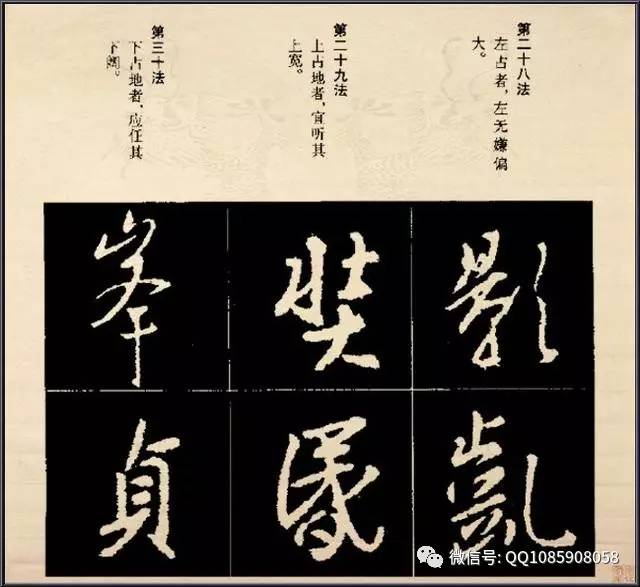 第二十八法
左占者，左无嫌偏
大。
第二十九法
上占地者，宜听其
上宽。
第三十法
下占地者，应任其
下阔。
影
奘
峯
貞
微信号: QQ1085908058